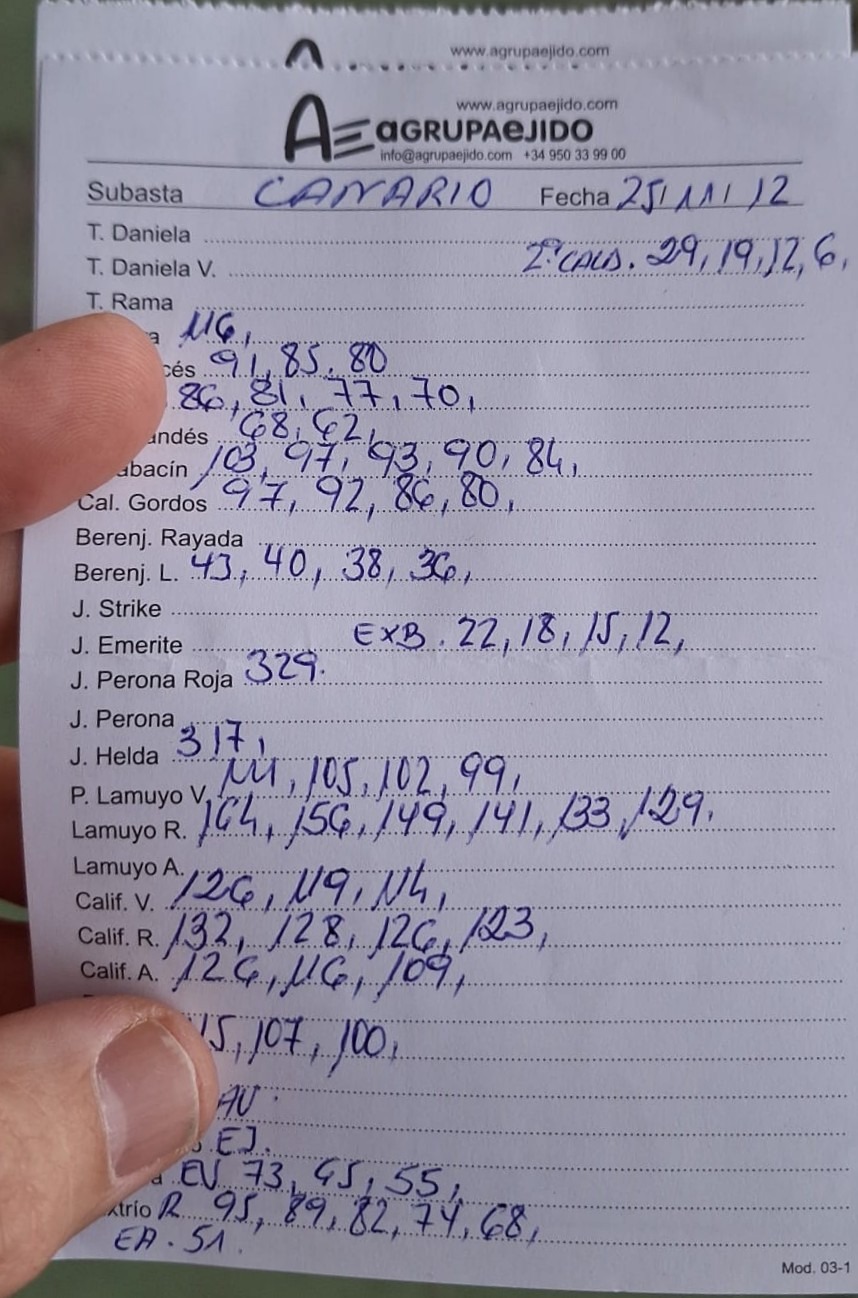 www.agrupaejido.com
www.agrupaejido.com
AE aGRUPAeJIDO
info@agrupaejido.com +34 950 33 99 00
Subasta CANARIO Fecha 25/11/12
T. Daniela
T. Daniela V. 2ª CALID. 29, 19, 12, 6,
T. Rama
a 116,
cés 91, 85, 80
86, 81, 77, 70,
andés 68, 62,
abacín 103, 97, 93, 90, 84,
Cal. Gordos 97, 92, 86, 80,
Berenj. Rayada
Berenj. L. 43, 40, 38, 36,
J. Strike
J. Emerite EXB. 22, 18, 15, 12,
J. Perona Roja 329.
J. Perona
J. Helda 317,
P. Lamuyo V. 111, 105, 102, 99,
Lamuyo R. 164, 156, 149, 141, 133, 129.
Lamuyo A.
Calif. V. 126, 119, 114,
Calif. R. 132, 128, 126, 123,
Calif. A. 126, 116, 109,
115, 107, 100,
AV.
EJ.
a EV 73, 65, 55,
xtrío R 95, 89, 82, 74, 68,
EA. 51.
Mod. 03-1